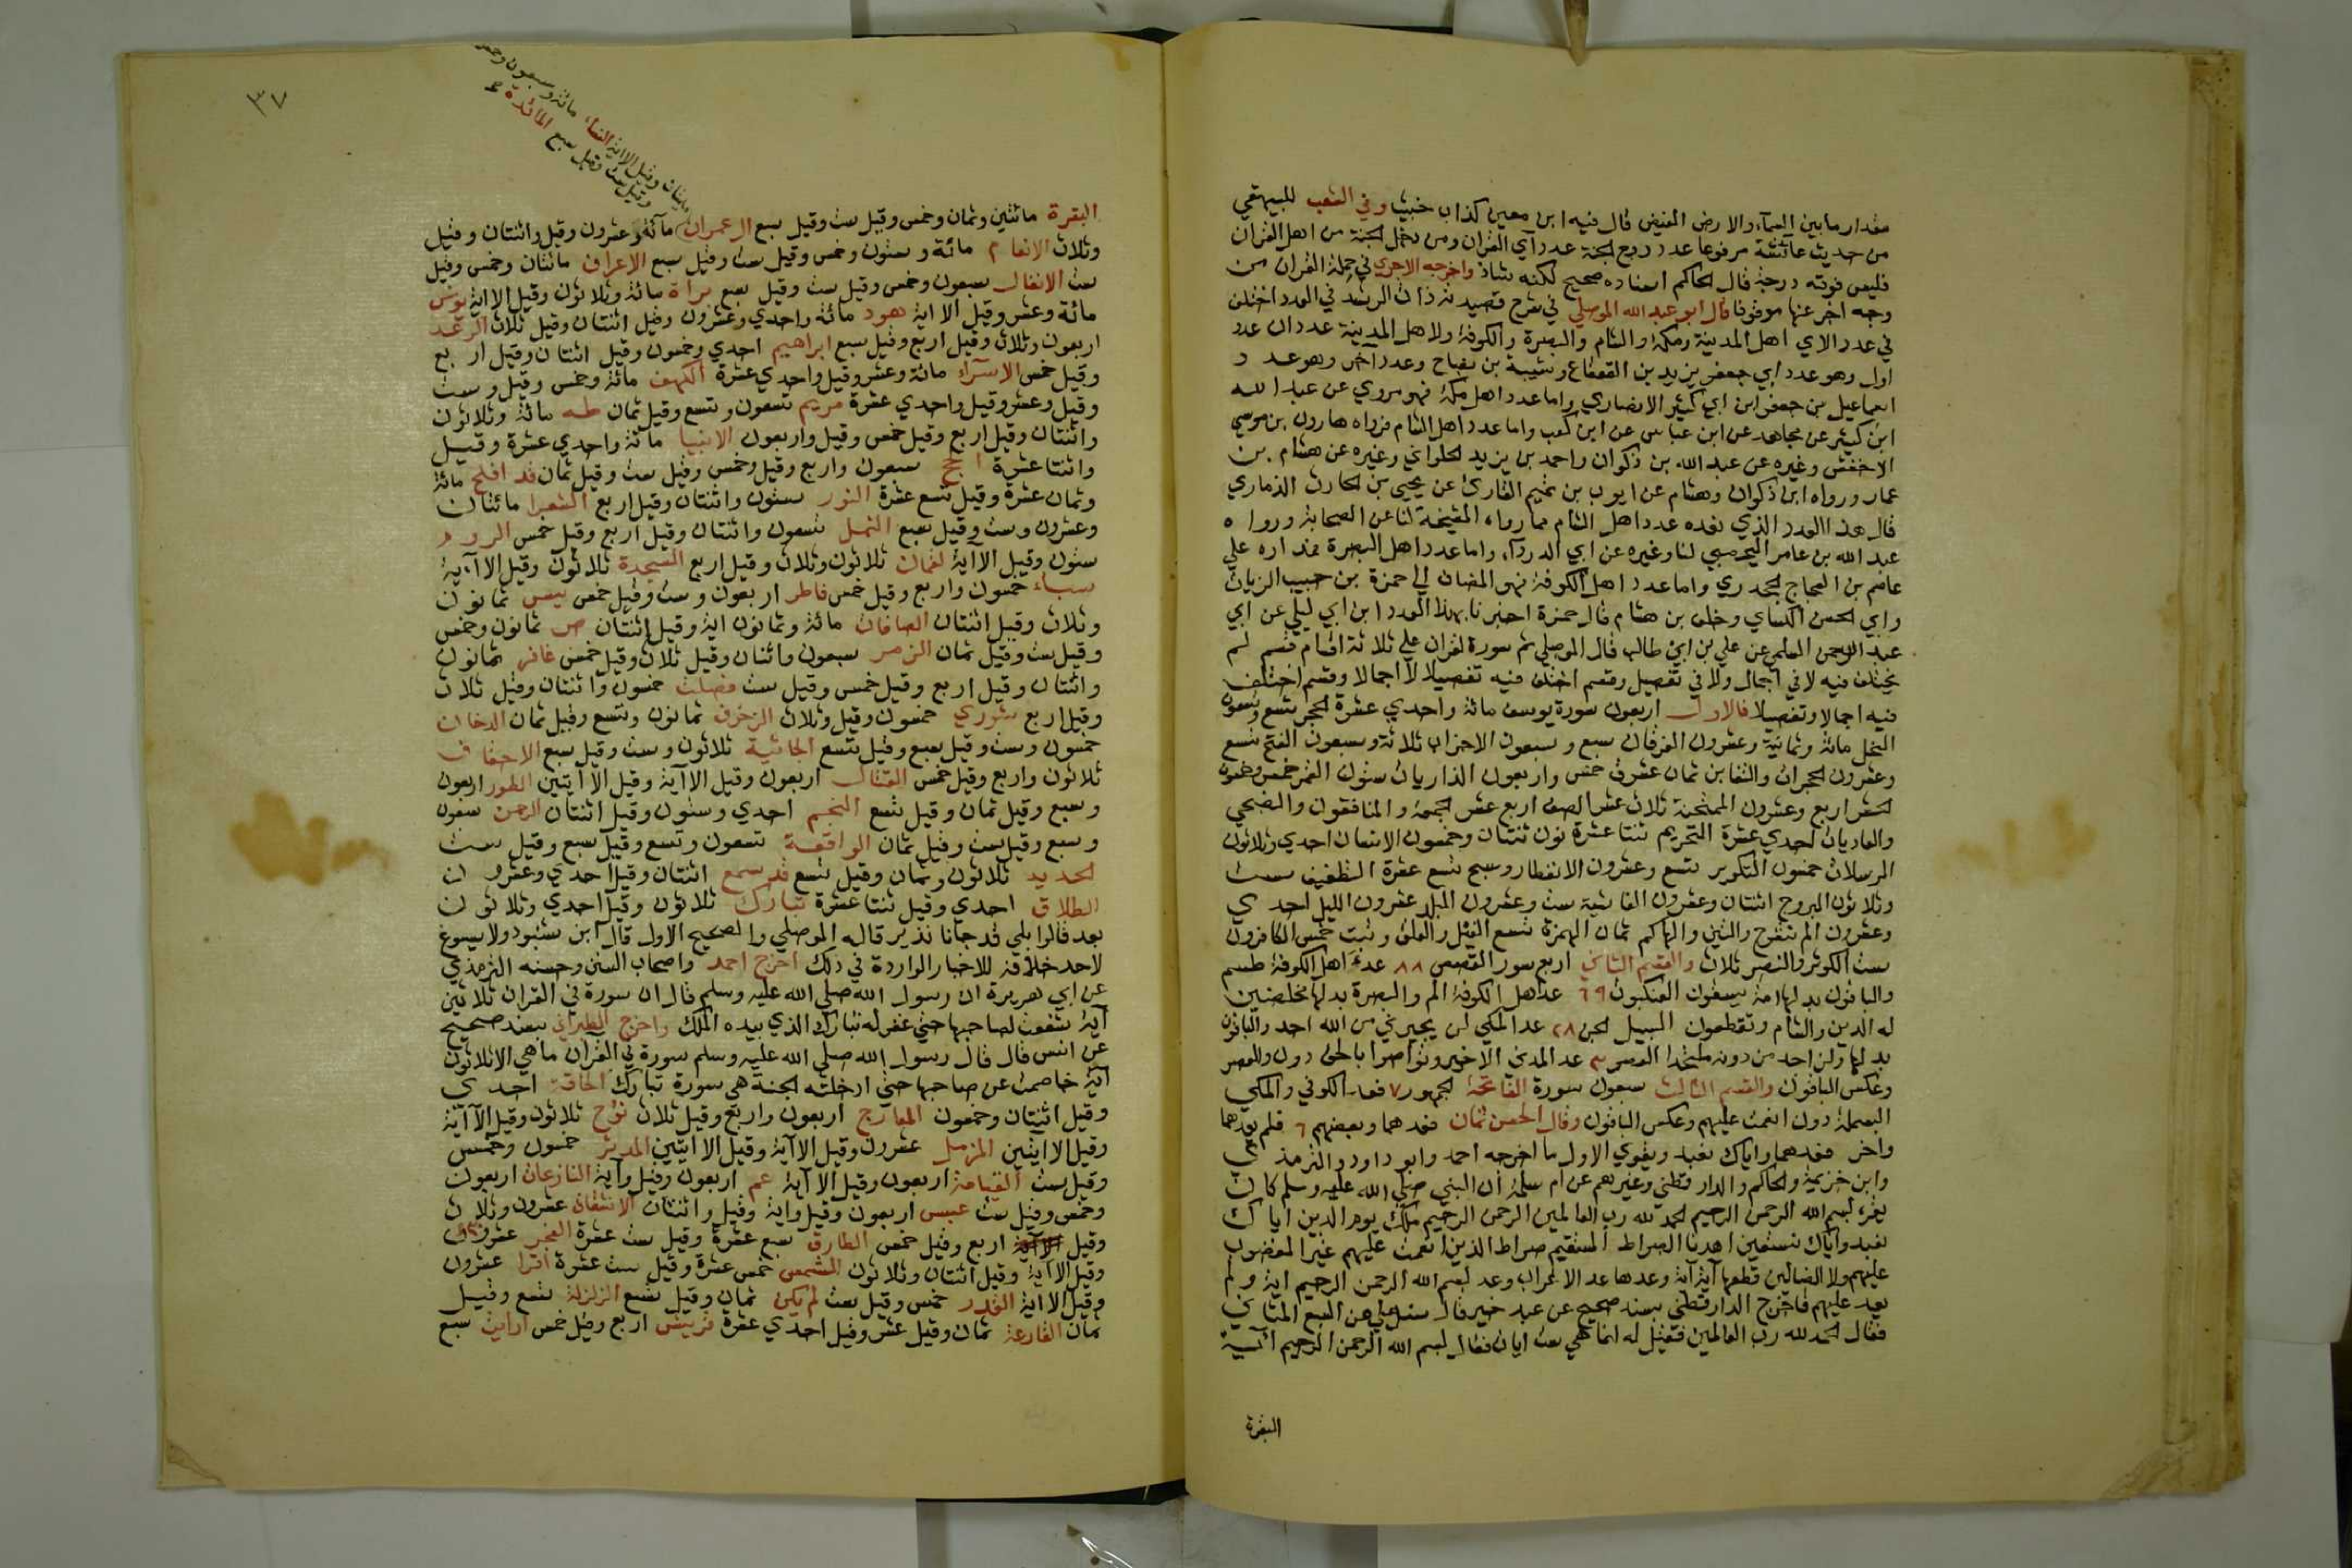 مقدار مابين السمآء والارض الفيض قال فيه ابن معين كذاب خبيث وفي الشعب للبيهقي
من حديث عائشة مرفوعا عدد درج الجنة عدد آي القران ومن دخل الجنة من اهل القران
فليس فوقه درجة قال الحاكم اسناده صحيح لكنه شاذ واخرجه الاجري في حملة القران من
وجه اخر عنها موقوفا قال ابو عبد الله الموصلي في شرح قصيدته ذات الرشد في العدد اختلف
في عدد الاي اهل المدينة ومكة والشام والبصرة والكوفة ولاهل المدينة عددان عدد
اول وهو عدد ابي جعفر يزيد بن القعقاع وشيبة بن نصاح وعدد اخر وهو عدد
اسماعيل بن جعفر ابن ابي كثير الانصاري واما عدد اهل مكة فهو مروي عن عبد الله
ابن كثير عن مجاهد عن ابن عباس عن ابن كعب واما عدد اهل الشام فرواه هارون بن موسي
الاخفش وغيره عن عبد الله بن ذكوان واحمد بن يزيد الحلواني وغيره عن هشام بن
عمار ورواه ابن ذكوان وهشام عن ايوب بن تميم القاري عن يحيي بن الحارث الذماري
قال هذا العدد الذي نعده عدد اهل الشام مما رواه المشيخة لنا عن الصحابة ورواه
عبد الله بن عامر اليحصبي لنا وغيره عن ابي الدردآء واما عدد اهل البصرة فمداره علي
عاصم بن العجاج الجحدري واما عدد اهل الكوفة فهو المضاف الي حمزة بن حبيب الزيات
وابي الحسن الكساي وخلف بن هشام قال حمزة اخبرنا بهذا العدد ابن ابي ليلي عن ابي
عبد الرحمن السلمي عن علي بن ابي طالب قال الموصلي ثم سورة القران علي ثلاثة اقسام قسم لم
يختلف فيه لا في اجمال ولا في تفصيل وقسم اختلف فيه تفصيلا لا اجمالا وقسم اختلف
فيه اجمالا وتفصيلا فالاول اربعون سورة يوسف مائة واحدي عشرة الحجر تسع وتسعون
النحل مائة وثمانية وعشرون الفرقان سبع وسبعون الاحزاب ثلاثة وسبعون الفتح تسع
وعشرون الحجرات والتغابن ثمان عشرق خمس واربعون الذاريات ستون القمر خمس وخمسون
الحشر اربع وعشرون الممتحنة ثلاث عشر الصف اربع عشر الجمعة والمنافقون والضحي
والعاديات احدي عشرة التحريم ثنتا عشرة نون ثنتان وخمسون الانسان احدي وثلاثون
المرسلات خمسون التكوير تسع وعشرون الانفطار وسبح تسع عشرة التطفيف ست
وثلاثون البروج اثنتان وعشرون الغاشية ست وعشرون البلد عشرون الليل احدي
وعشرون الم نشرح والتين والهاكم ثمان الهمزة تسع الفيل والفلق وتبت خمس الكافرون
ست الكوثر والنصر ثلاث والقسم الثاني اربع سور القصص ٨٨ عد اهل الكوفة طسم
والباقون بدلها امة يسقون العنكبوت ٦٩ عد اهل الكوفة الم والبصرة بدلها مخلصين
له الدين والشام وتقطعون السبيل الجن ٢٨ عد المكي لن يجيرني من الله احد والباقون
بدلها ولن اجد من دونه ملتحدا العصر ٣ عد المدني الاخير وتواصوا بالحق دون والعصر
وعكس الباقون والقسم الثالث سبعون سورة الفاتحة الجمهور ٧ فعد الكوفي والمكي
البسملة دون انعمت عليهم وعكس الباقون وقال الحسن ثمان فعدهما وبعضهم ٦ فلم يعدهما
واخر فعدهما واياك نعبد ويقوي الاول ما اخرجه احمد وابو داود والترمذي
وابن خزيمة والحاكم والدارقطني وغيرهم عن ام سلمة ان النبي صلي الله عليه وسلم كان
يقرء بسم الله الرحمن الرحيم الحمد لله رب العالمين الرحمن الرحيم ملك يوم الدين اياك
نعبد واياك نستعين اهدنا الصراط المستقيم صراط الذين انعمت عليهم غير المغضوب
عليهم ولا الضالين قطعها آية آية وعدها عد الاعراب وعد بسم الله الرحمن الرحيم اية ولم
يعد عليهم فاخرج الدارقطني بسند صحيح عن عبد خير قال سئل علي عن السبع المثاني
فقال الحمد لله رب العالمين فقيل له انما هي ست ايات فقال بسم الله الرحمن الرحيم آية
البقرة
٣٧
مائتان وقيل الا اية النساء مائة وسبعون وخمس
وقيل ست وقيل سبع المائدة
البقرة مائتين وثمان وخمس وقيل ست وقيل سبع ال عمران مآئة وعشرون وقيل واثنتان وقيل
وثلاث الانعام مائة وستون وخمس وقيل ست وقيل سبع الاعراف مائتان وخمس وقيل
ست الانفال سبعون وخمس وقيل ست وقيل سبع براة مائة وثلاثون وقيل الا اية يونس
مائة وعشر وقيل الا اية هود مائة واحدي وعشرون وقيل اثنتان وقيل ثلاث الرعد
اربعون وثلاث وقيل اربع وقيل سبع ابراهيم احدي وخمسون وقيل اثنتان وقيل اربع
وقيل خمس الاسرآء مائة وعشر وقيل واحدي عشرة الكهف مائة وخمس وقيل وست
وقيل وعشر وقيل واحدي عشرة مريم تسعون وتسع وقيل ثمان طه مائة وثلاثون
واثنتان وقيل اربع وقيل خمس وقيل واربعون الانبيا مائة واحدي عشرة وقيل
واثنتا عشرة الحج سبعون واربع وقيل وخمس وقيل ست وقيل ثمان قد افلح مائة
وثمان عشرة وقيل تسع عشرة النور ستون واثنتان وقيل اربع الشعرا مائتان
وعشرون وست وقيل سبع النمل تسعون واثنتان وقيل اربع وقيل خمس الروم
ستون وقيل الاآية لقمان ثلاثون وثلاث وقيل اربع السجدة ثلاثون وقيل الا آية
سباء خمسون واربع وقيل خمس فاطر اربعون وست وقيل خمس يس ثمانون
وثلاث وقيل اثنتان الصافات مائة وثمانون اية وقيل اثنتان ص ثمانون وخمس
وقيل ست وقيل ثمان الزمر سبعون واثنان وقيل ثلاث وقيل خمس غافر ثمانون
واثنتان وقيل اربع وقيل خمس وقيل ست فصلت خمسون واثنتان وقيل ثلاث
وقيل اربع شوري خمسون وقيل وثلاث الزخرف ثمانون وتسع وقيل ثمان الدخان
خمسون وست وقيل سبع وقيل تسع الجاثية ثلاثون وست وقيل سبع الاحقاف
ثلاثون واربع وقيل خمس القتال اربعون وقيل الاآية وقيل الاآيتين الطور اربعون
وسبع وقيل ثمان وقيل تسع النجم احدي وستون وقيل اثنتان الرحمن سبعون
وسبع وقيل ست وقيل ثمان الواقعة تسعون وتسع وقيل سبع وقيل ست
الحديد ثلاثون وثمان وقيل تسع قد سمع اثنتان وقيل احدي وعشرون
الطلاق احدي وقيل ثنتا عشرة تبارك ثلاثون وقيل احدي وثلاثون
بعد قالوا بلي قد جانا نذير قاله الموصلي والصحيح الاول قال ابن شنبود ولا يسوغ
لاحد خلافه للاخبار الواردة في ذلك اخرج احمد واصحاب السنن وحسنه الترمذي
عن ابي هريرة ان رسول الله صلي الله عليه وسلم قال ان سورة في القران ثلاثين
آية شفعت لصاحبها حتي غفر له تبارك الذي بيده الملك واخرج الطبراني بسند صحيح
عن انس قال قال رسول الله صلي الله عليه وسلم سورة في القران ما هي الا ثلاثون
اية خاصمت عن صاحبها حتي ادخلته الجنة هي سورة تبارك الحاقة احدي
وقيل اثنتان وخمسون المعارج اربعون واربع وقيل ثلاث نوح ثلاثون وقيل الاآية
وقيل الا ايتين المزمل عشرون وقيل الاآية وقيل الا ايتين المدثر خمسون وخمس
وقيل ست القيامة اربعون وقيل الاآية عم اربعون وقيل وآية النازعات اربعون
وخمس وقيل ست عبس اربعون وقيل واية وقيل واثنتان الانشقاق عشرون وثلاث
وقيل اربع وقيل خمس الطارق سبع عشرة وقيل ست عشرة الفجر عشرون
وقيل الا اية وقيل اثنتان وثلاثون الشمس خمس عشرة وقيل ست عشرة اقرا عشرون
وقيل الا اية القدر خمس وقيل ست لم يكن ثمان وقيل تسع الزلزلة تسع وقيل
ثمان القارعة ثمان وقيل عشر وقيل احدي عشرة قريش اربع وقيل خمس ارايت سبع